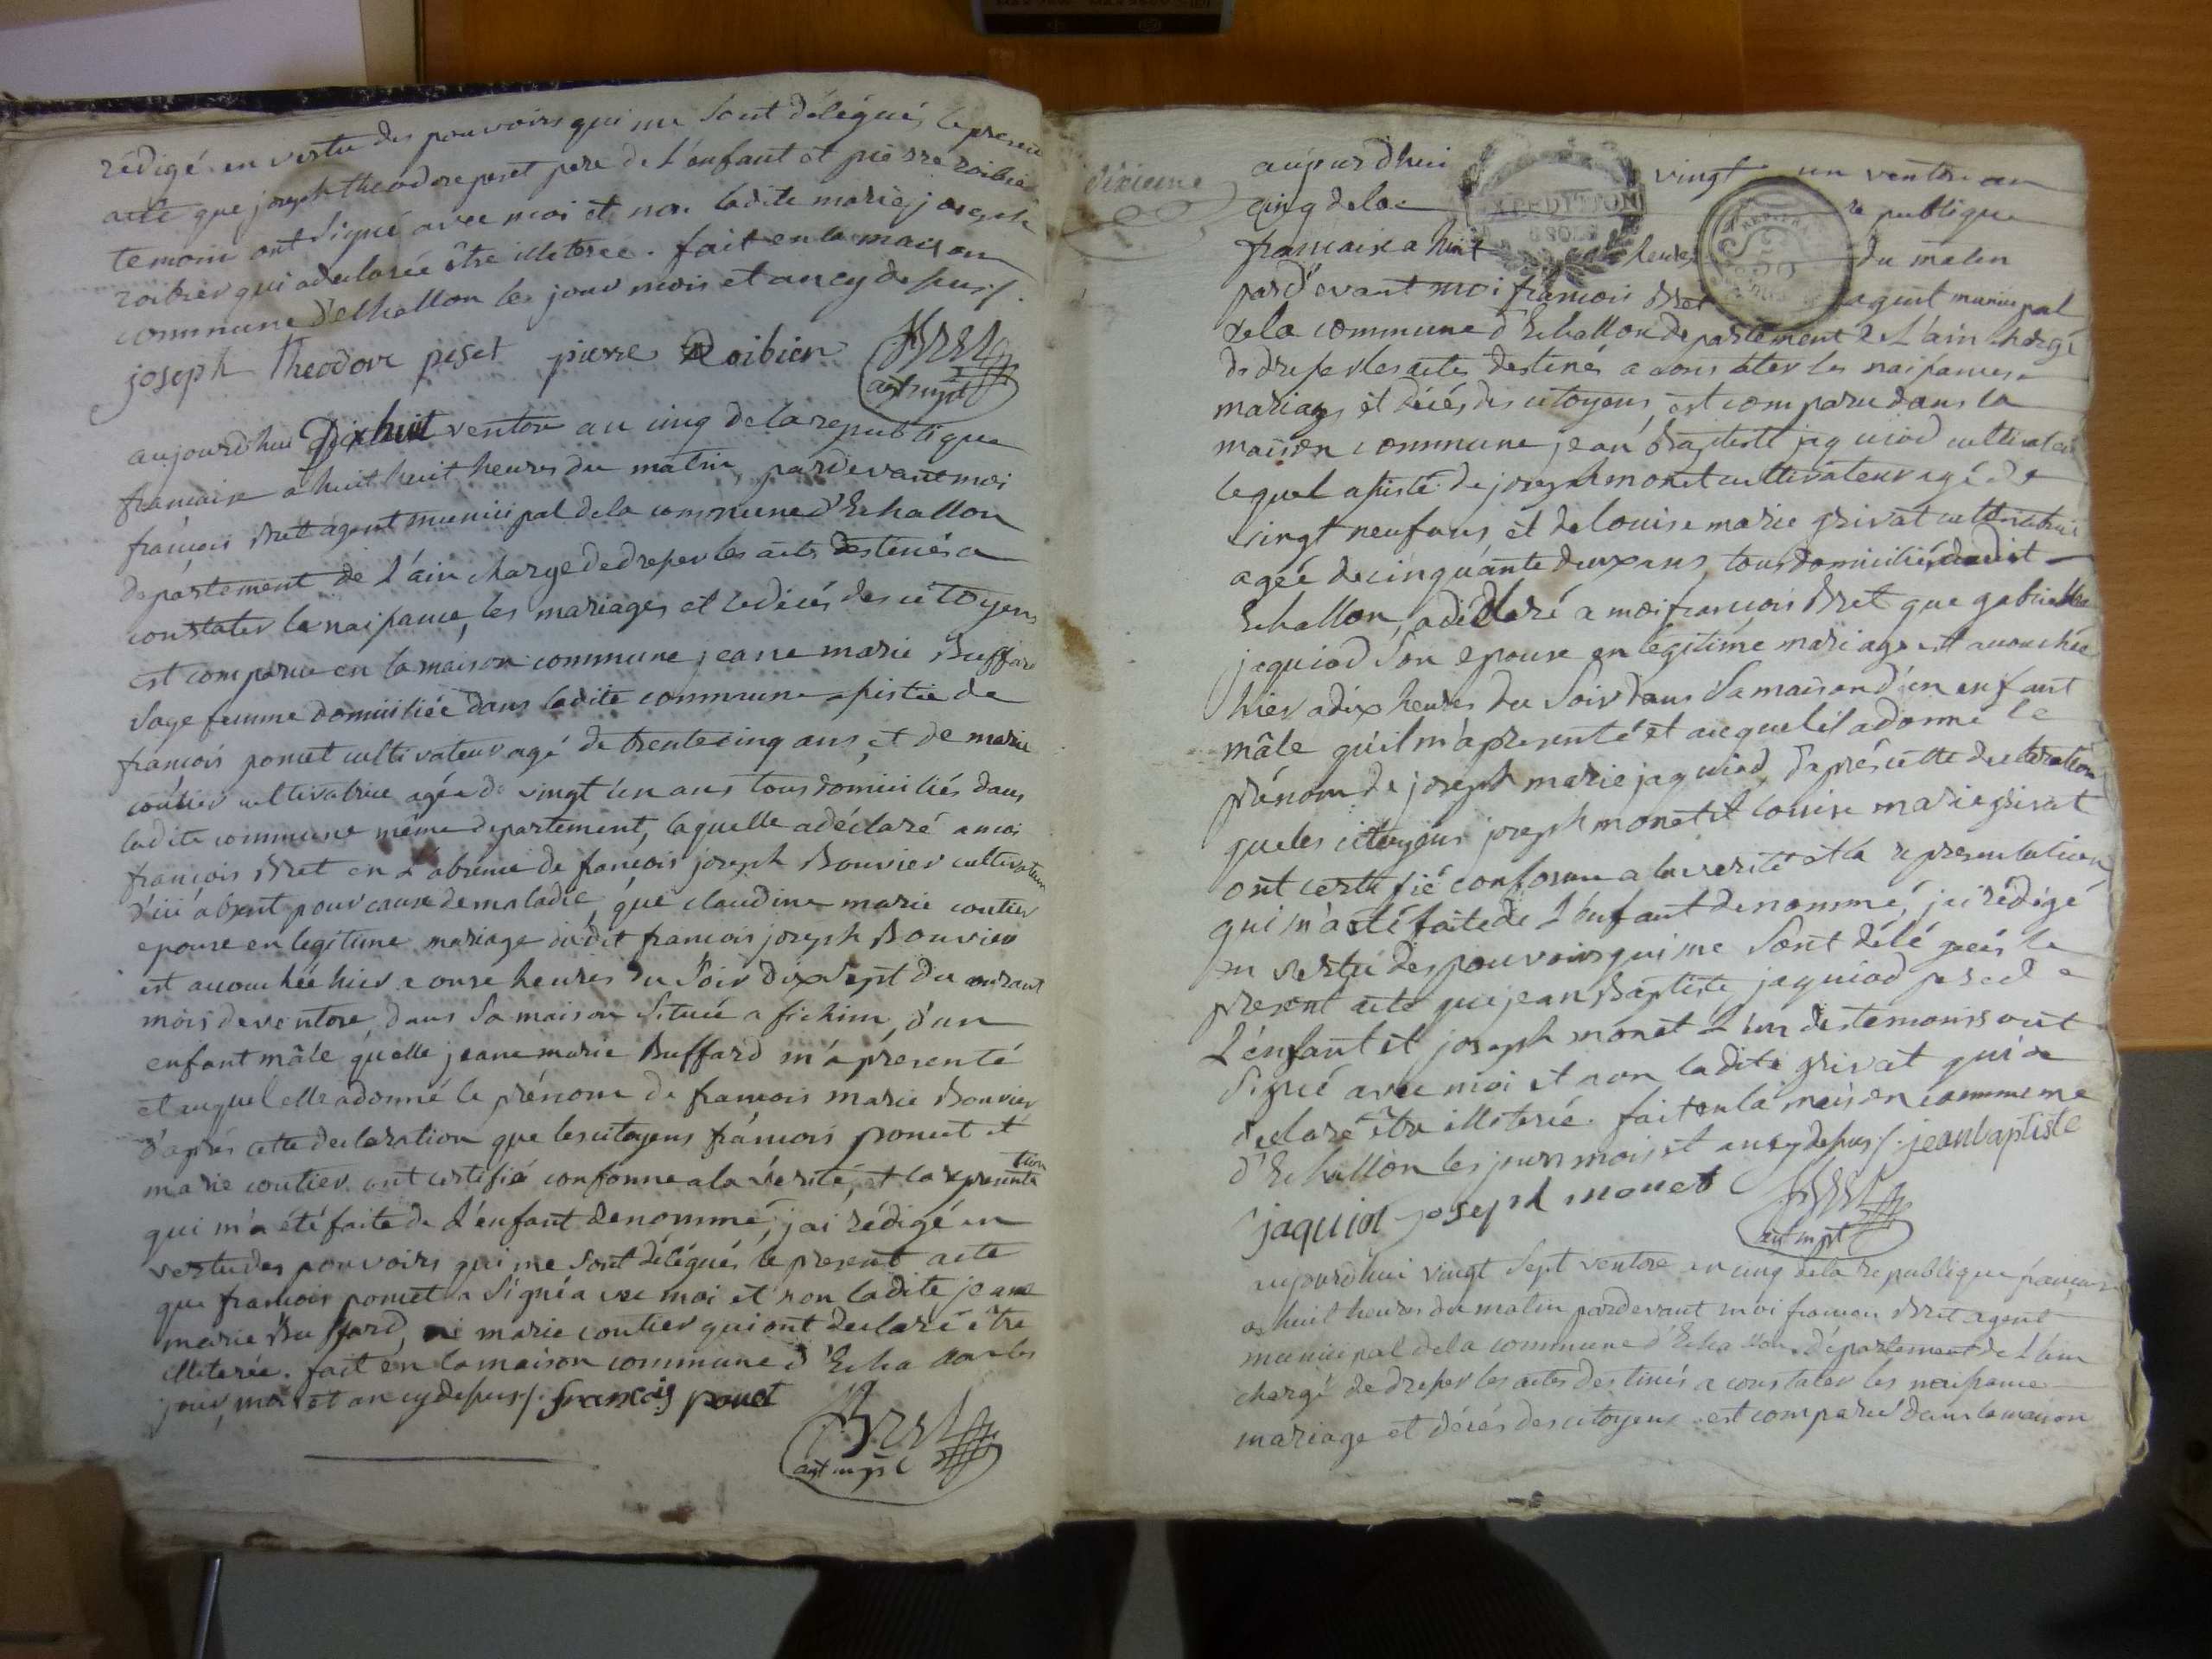 rédigé en vertu des pouvoirs qui me sont délégués le present
acte que joseph theodore poset pere de L'enfant et pierre roibier
temoin ont signé avec moi et non ladite marie josephe
roibier qui a declarée être illeterée. fait en la maison
commune d'Echallon les jour mois et an cy depuis/.
joseph Theodore poset pierre Roibier Bret
agt mpl
aujourdhui Dix huit ventose an cinq de la republique
francaise a huit huit heures du matin, pardevant moi
françois Bret agent municipal de la commune d'Echallon
departement de L'ain chargé de dresser les actes destinés a
constater la naissance, les mariages et le décés des citoyens
est comparue en la maison commune jeane marie Buffard
sage femme domiciliée dans ladite commune assistée de
françois ponut cultivateur agé de trente cinq ans, et de marie
coutier cultivatrice agée de vingt un ans tous domiciliés dans
ladite commune même departement, laquelle a déclaré a moi
françois Bret en L'absence de françois joseph Bouvier cultivateur
d'ici absent pour cause de maladie, que claudine marie coutier
epouse en legitime mariage dudit francois joseph Bouvier
est accouchée hier a onze heures du soir dix sept du courant
mois de ventose, dans sa maison située a fichin, d'un
enfant mâle qu'elle jeane marie Buffard m'a présenté
et auquel elle a donné le prénom de francois marie Bouvier
d'aprés cette declaration que les citoyens françois ponut et
marie coutier ont certifié conforme a la vérité, et la representation
qui m'a été faite de L'enfant denommé, j'ai rédigé en
vertu des pouvoirs qui me sont délégués le present acte
que francois ponut a signé avec moi et non ladite jeane
marie Buffard, ni marie coutier qui ont declaré être
illeterée. fait en la maison commune d'Echallon les
jour, mois et an cy depuis/. francois ponet
Bret
agt mpl
dixieme
aujourdhui vingt un ventose an
cinq de la EXPEDITION republique
francaise a huit 8 SOLS heures du matin
pard'evant moi françois Bret agent municipal
de la commune d'Echallon departement de L'ain chargé
de dresser les actes destinés a constater les naissances
mariages et décés des citoyens, est comparu dans la
maison commune jean Baptiste jaquiod cultivateur
lequel assisté de joseph monet cultivateur agé de
vingt neuf ans et de louise marie grivat cultivatrice
agée de cinquante deux ans, tous domiciliés dudit
Echallon, a déclaré a moi françois Bret que gabrielle
jaquiod son epouse en légitime mariage est accouchée
hier a dix heures du soir dans sa maison d'un enfant
mâle qu'il m'a presenté et auquel il a donné le
prénom de joseph marie jaquiod, d'aprés cette declaration
que les citoyens joseph monet et louise marie grivat
ont certifié conforme a la verité et la representation
qui m'a été faite de L'enfant denommé, j'ai rédigé
en vertu des pouvoirs qui me sont délégués le
present acte que jean Baptiste jaquiod pere de
L'énfant et joseph monet L'un des temoins ont
signé avec moi et non ladite grivat qui a
declaré être illeterée. fait en la maison commune
d'Echallon les jour mois et an cy depuis/. jean baptiste
jaquiot joseph monet Bret
agt mpl
aujourdhui vingt sept ventose an cinq de la republique francaise
a huit heures du matin pardevant moi francois Bret agent
municipal de la commune d'Echallon département de L'ain
chargé de dresser les actes destinés a constater les naissance
mariage et décés des citoyens est comparu dans la maison